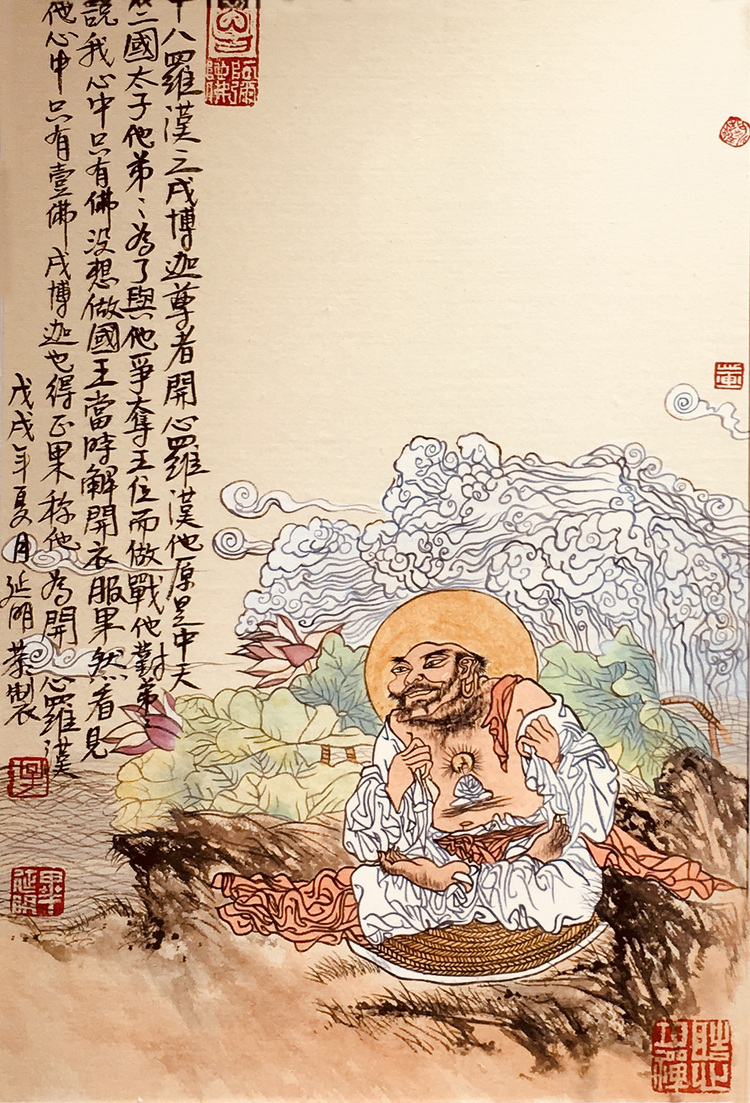 十八羅漢之戌博迦尊者開心羅漢他原是中天
竺國太子他弟〻為了與他爭奪王位而做戰他對弟〻
說我心中只有佛沒想做國王當時解開衣服果然看見
他心中只有壹佛戌博迦也得正果稱他為開心羅漢
戊戌年夏月延明恭製
阿彌陀佛